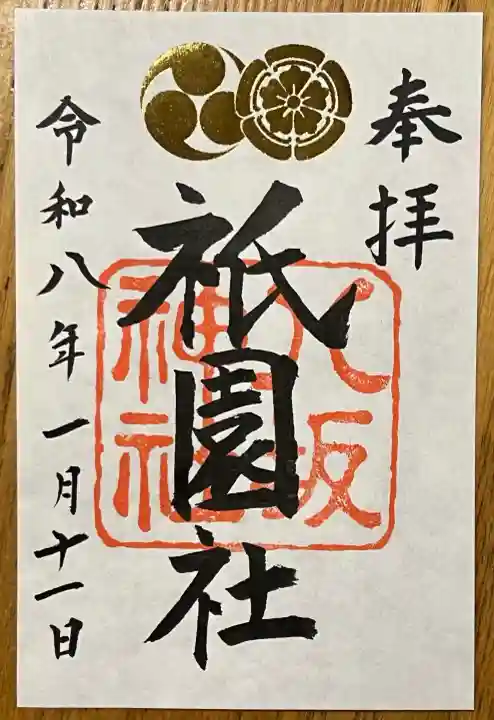 奉拝
祇園社
八坂神社
令和八年一月十一日